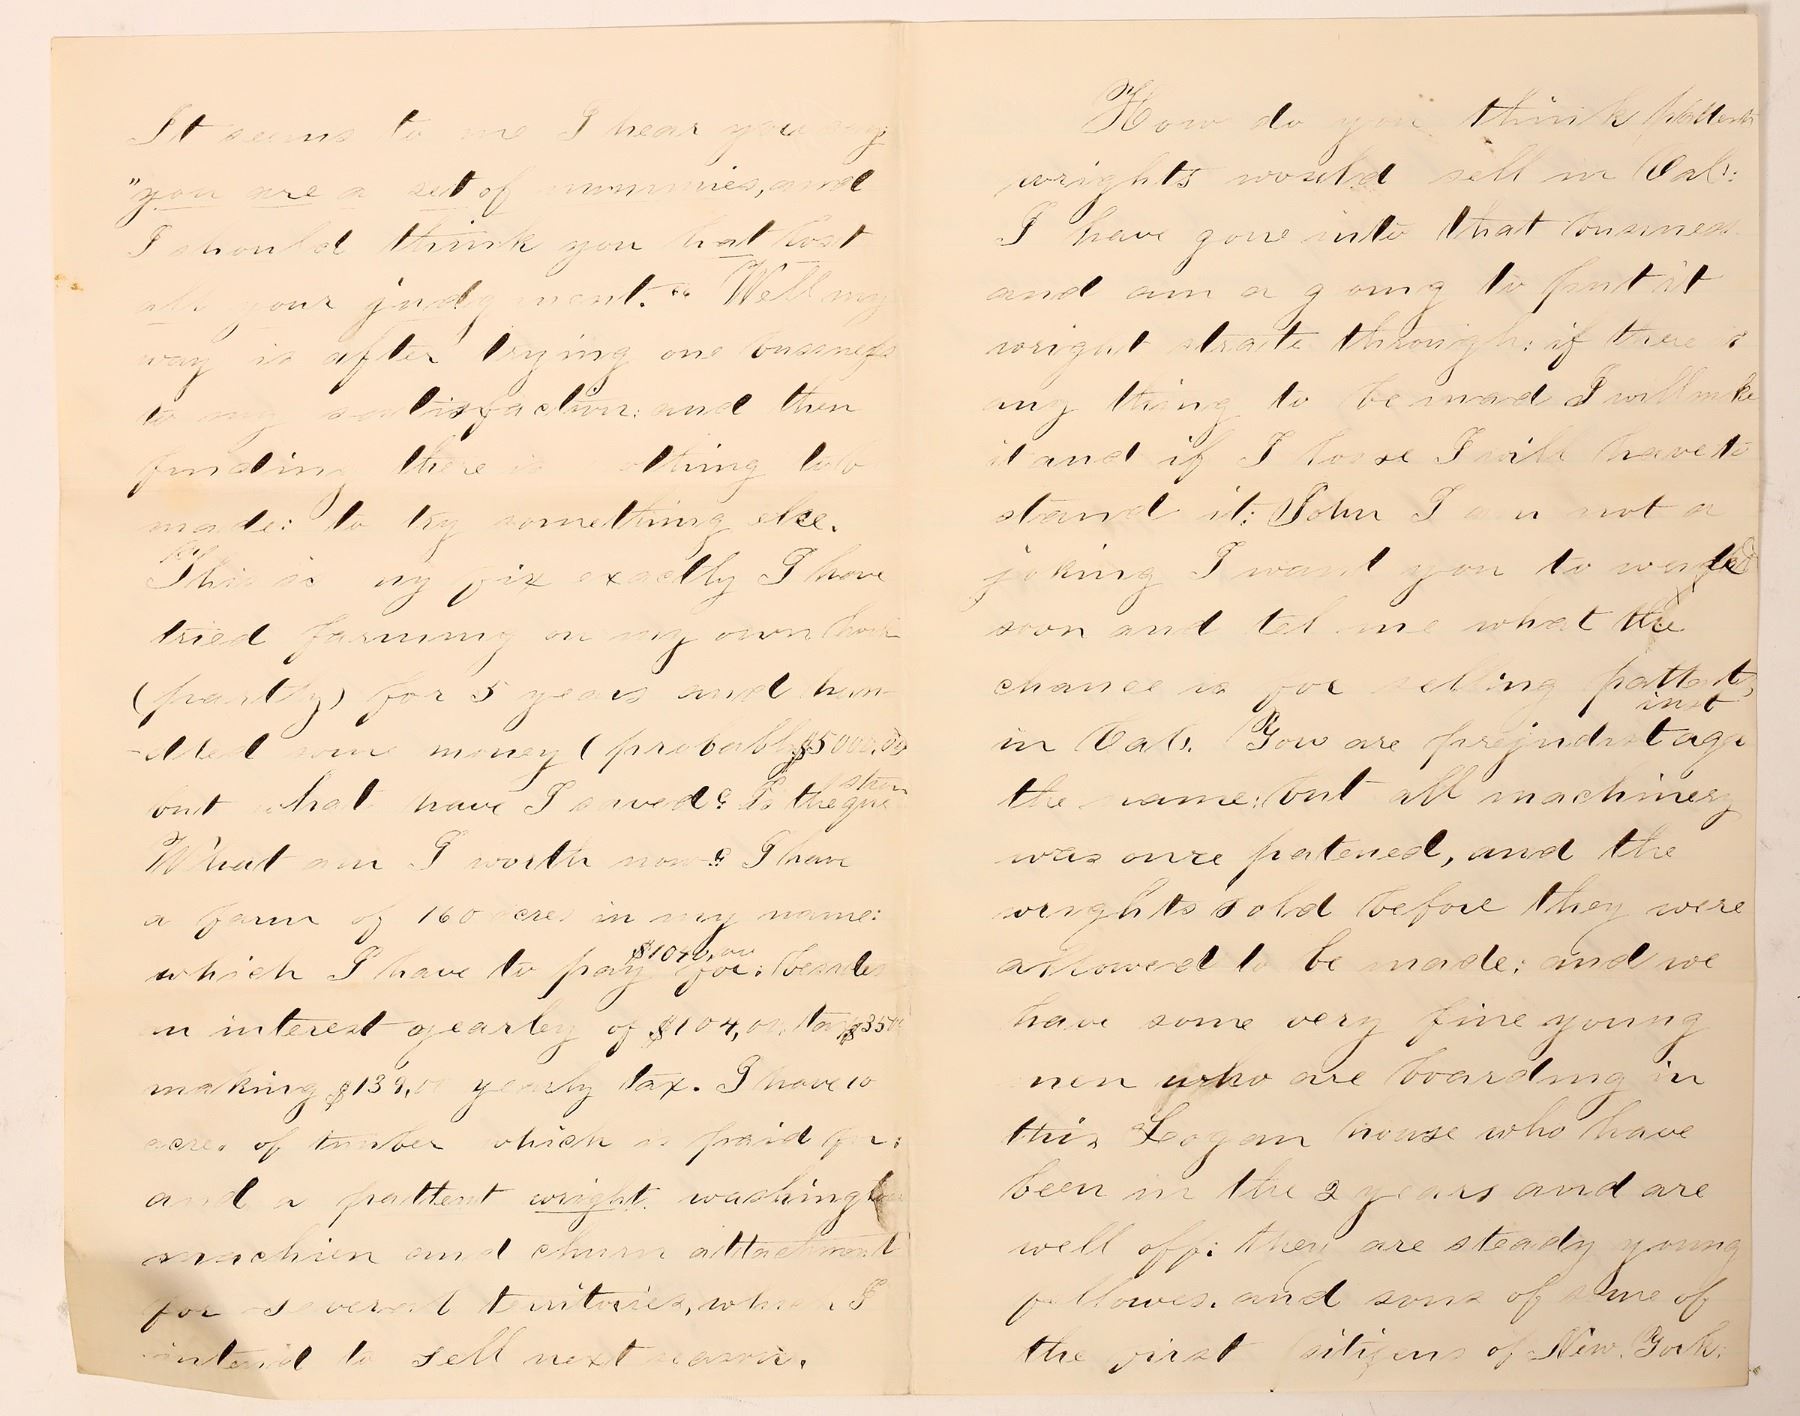 It seems to me I hear you say
"you are a set of nummies, and
I should think you hat lost
all your judgment." Well my
way is after trying one bussness
to my satisfaction: and then
funding there is othing to be
made: to try something else.
This is my fix exactly I have
tried farming on my own hook
(partly) for 5 years and han-
-dled some money (probably $5000,00
but what have I saved? Is the question
What am I worth now? I have
a farm of 160 acres in my name:
which I have to pay $1040,00 for: besides
an interest yearley of $104,00, tax $35,00
making $139,00 yearly tax. I have 10
acres of timber which is paid for:
and a pattent wright washing
machien and churn attachment
for several teritories, which I
intend to sell next season.
How do you think pattent
wrights would sell in Cal:
I have gone into that bussness
and am a going to put it
wright straite through: if there is
any thing to be mad I will make
it and if I loose I will have to
stand it: John I am not a
joking I want you to
soon and tel me what the
chance is for selling pattents
in Cal. You are prejudist against
the name: but all machinery
was once patened, and the
wrights sold before they were
allowed to be made: and we
have some very fine young
men who are boarding in
this Logan house who have
been in the 2 years and are
well off: they are steady young
fellowes. and sons of some of
the first sitizens of New. York: